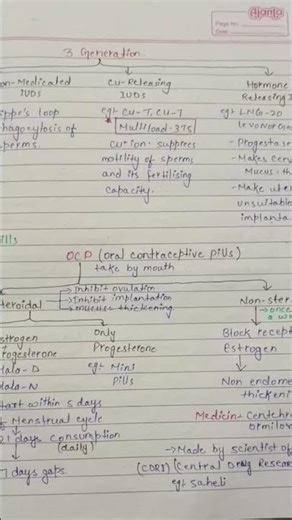 Ajanta
Page No.
Date
3 Generation
on-Medicated
IUDs
Cu-Releasing
IUDs
Hormone
Releasing I
ippe's loop
hagocytosis of
sperms.
eg:- Cu-T, Cu-7
* Multiload-375
Cu+ion- supprees
motility of sperms
and its fertilising
capacity.
eg:- LNG-20
Levonor
- Progestase
- Makes Cerv
Mucus : th
- Make uter
unsuitable
implanta
ills
OCP (oral contraceptive pills)
take by mouth
→ Inhibit ovulation
→ Inhibit implantation
→ mucus thickening.
teroidal
Non-ster
→ once
a we
strogen
+
rogesterone
Mala-D
Mala-N
Only
Progesterone
eg:- Mini
Pills
Block recept
Estrogen
Non endome
thickeni
tart within 5 days
f Menstrual cycle
21 days consumption
(daily)
7 days gaps.
Medicin:- Centchr
ormilox
→ Made by scientist of
(CDRI) (Central Drug Resear
eg:- saheli